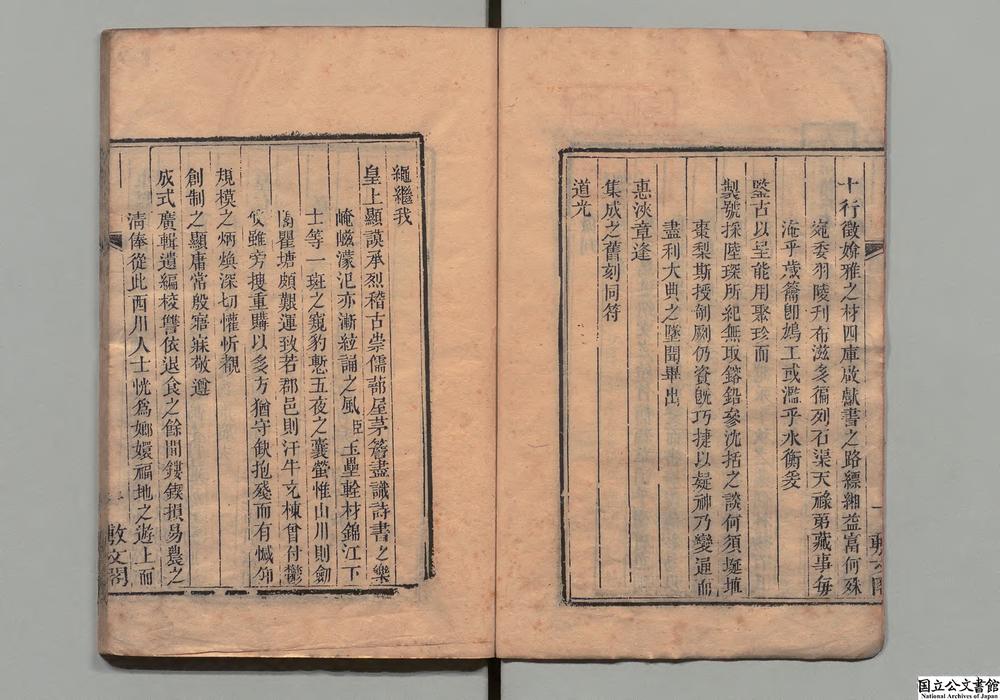 十行徵媕雅之材四庫啟獻書之路縹緗益富何殊
宛委羽陵刋布滋多徧列石渠天祿第蕆事每
淹乎歲籥卽鳩工或濫乎水衡爰
鑒古以呈能用聚珍而
製號採陸琛所紀無取鎔鉛參沈括之談何須埏埴
棗梨斯授剞劂仍資旣巧捷以疑神乃變通而
盡利大典之墜聞畢出
惠浹章逢
集成之舊刻同符
道光
繩繼我
皇上顯謨承烈稽古崇儒蔀屋茅簷盡識詩書之樂
崦嵫濛汜亦漸絃誦之風臣玉壘輇材錦江下
士等一斑之窺豹慙五夜之囊螢惟山川則劒
閣瞿塘頗艱運致若郡邑則汗牛充棟曾付鬱
攸雖旁搜重購以多方猶守缺抱殘而有憾仰
規模之炳煥深切懽忻覩
創制之顯庸常殷寤寐敬遵
成式廣輯遺編校讐依退食之餘閒鏤鍥損易農之
淸俸從此西川人士恍爲嫏嬛福地之遊上而
敷文閣
国立公文書館
National Archives of Japan